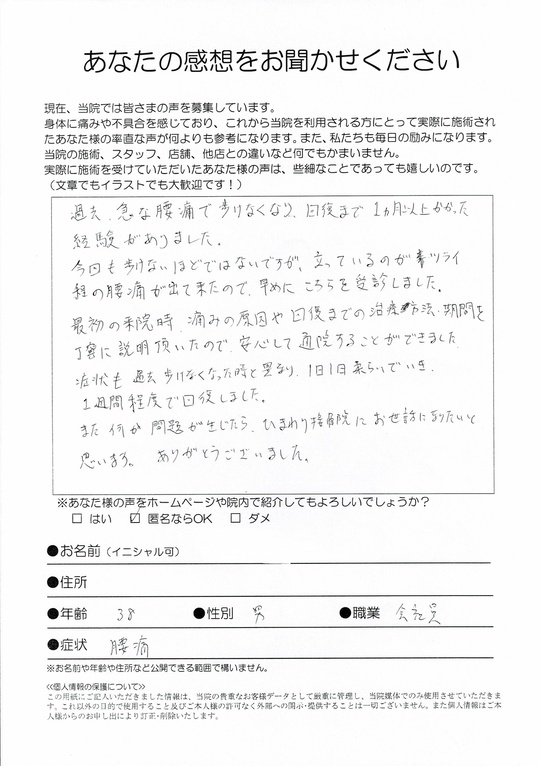 あなたの感想をお聞かせください
現在、当院では皆さまの声を募集しています。
身体に痛みや不具合を感じており、これから当院を利用される方にとって実際に施術され
たあなた様の率直な声が何よりも参考になります。また、私たちも毎日の励みになります。
当院の施術、スタッフ、店舗、他店との違いなど何でもかまいません。
実際に施術を受けていただいたあなた様の声は、些細なことであっても嬉しいのです。
（文章でもイラストでも大歓迎です！）
過去、急な腰痛で歩けなくなり、回復まで1ヵ月以上かかった
経験がありました。
今回も歩けないほどではないですが、立っているのが辛ツライ
程の腰痛が出て来たので、早めにこちらを受診しました。
最初の来院時、痛みの原因や回復までの治療方法・期間を
丁寧に説明頂いたので、安心して通院することができました。
症状も過去歩けなくなった時と異なり、1日1日柔らいでいき、
1週間程度で回復しました。
また何か問題が生じたら、ひまわり接骨院にお世話になりたいと
思います。 ありがとうございました。
※あなた様の声をホームページや院内で紹介してもよろしいでしょうか？
□ はい ☑ 匿名ならOK □ ダメ
●お名前（イニシャル可）
●住所
●年齢 38 ●性別 男 ●職業 会社員
●症状 腰痛
※お名前や年齢や住所など公開できる範囲で構いません。
≪個人情報の保護について≫
この用紙にご記入いただきました情報は、当院の貴重なお客様データとして厳重に管理し、当院媒体でのみ使用させていただきま
す。これ以外の目的で使用すること及びご本人様の許可なく外部への開示・提供することは一切ございません。また個人情報はご本
人様からのお申し出により訂正・削除いたします。